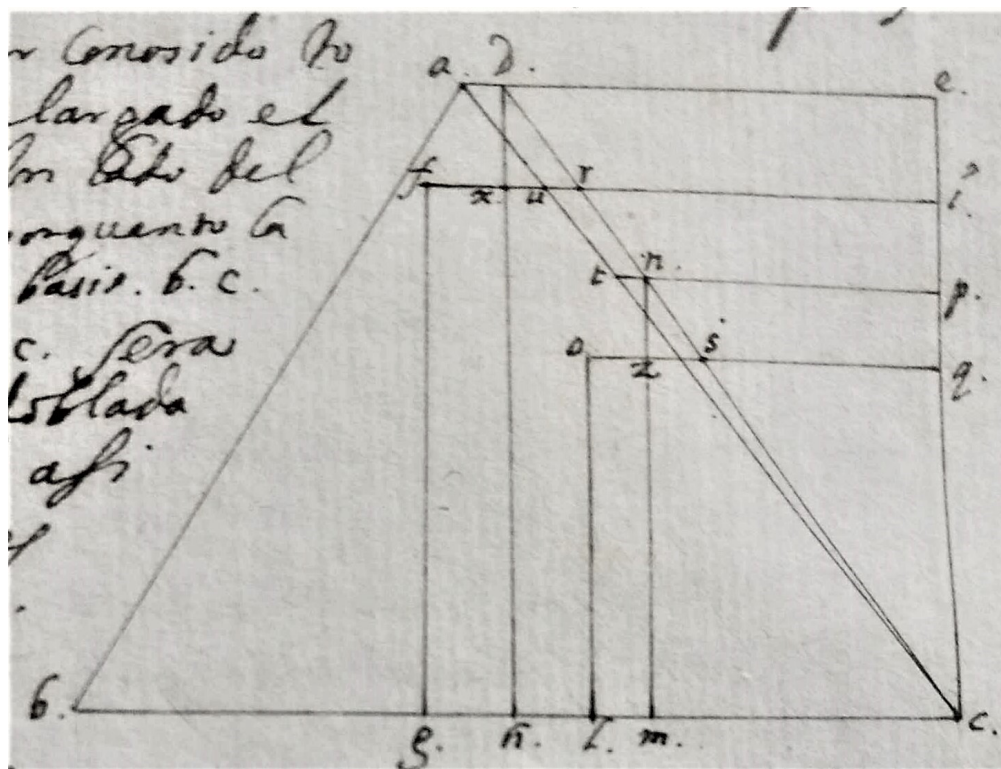 conosido to
largado el
lado del
onquanto la
basis. b. c.
c. sera
doblada
asi
a. D. e.
f x u r i.
t n. p.
o z s q.
b. g. h. l. m. c.